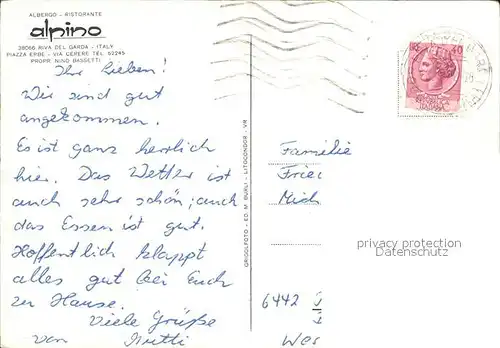 ALBERGO - RISTORANTE
alpino
38066 RIVA DEL GARDA - ITALY
PIAZZA ERBE - VIA CERERE TEL 52245
PROPR NINO BASSETTI
Ihr Lieben!
Wir sind gut
angekommen.
Es ist ganz herrlich
hier. Das Wetter ist
auch sehr schön; auch
das Essen ist gut.
Hoffentlich klappt
alles gut bei Euch
zu Hause.
Viele Grüße
von Mutti
GRIGOLFOTO - ED. M. BURLI - LITOCONDOR - VR
40
Familie
Fried
Mich
6442
privacy protection
Dienstbier